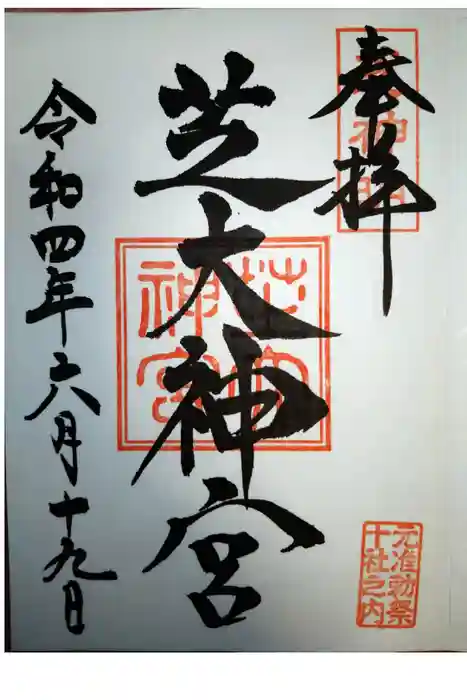 奉拝
芝大神宮
芝大神宮
令和四年六月十九日
元准勅祭
十社之内